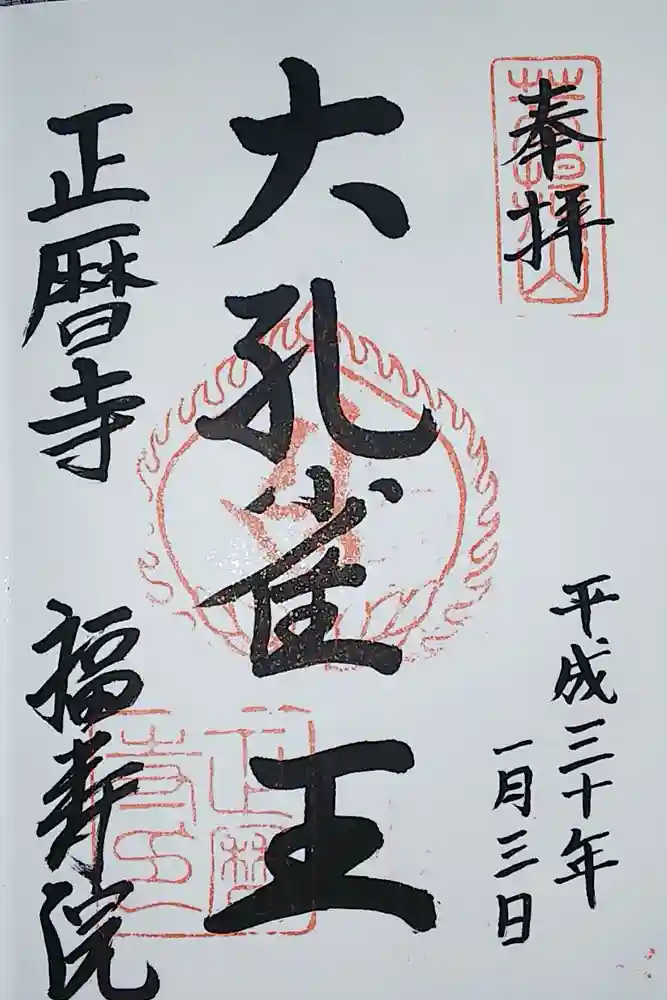 奉拝
平成三十年
一月三日
大孔雀王
正暦寺
福寿院
正暦
寺印